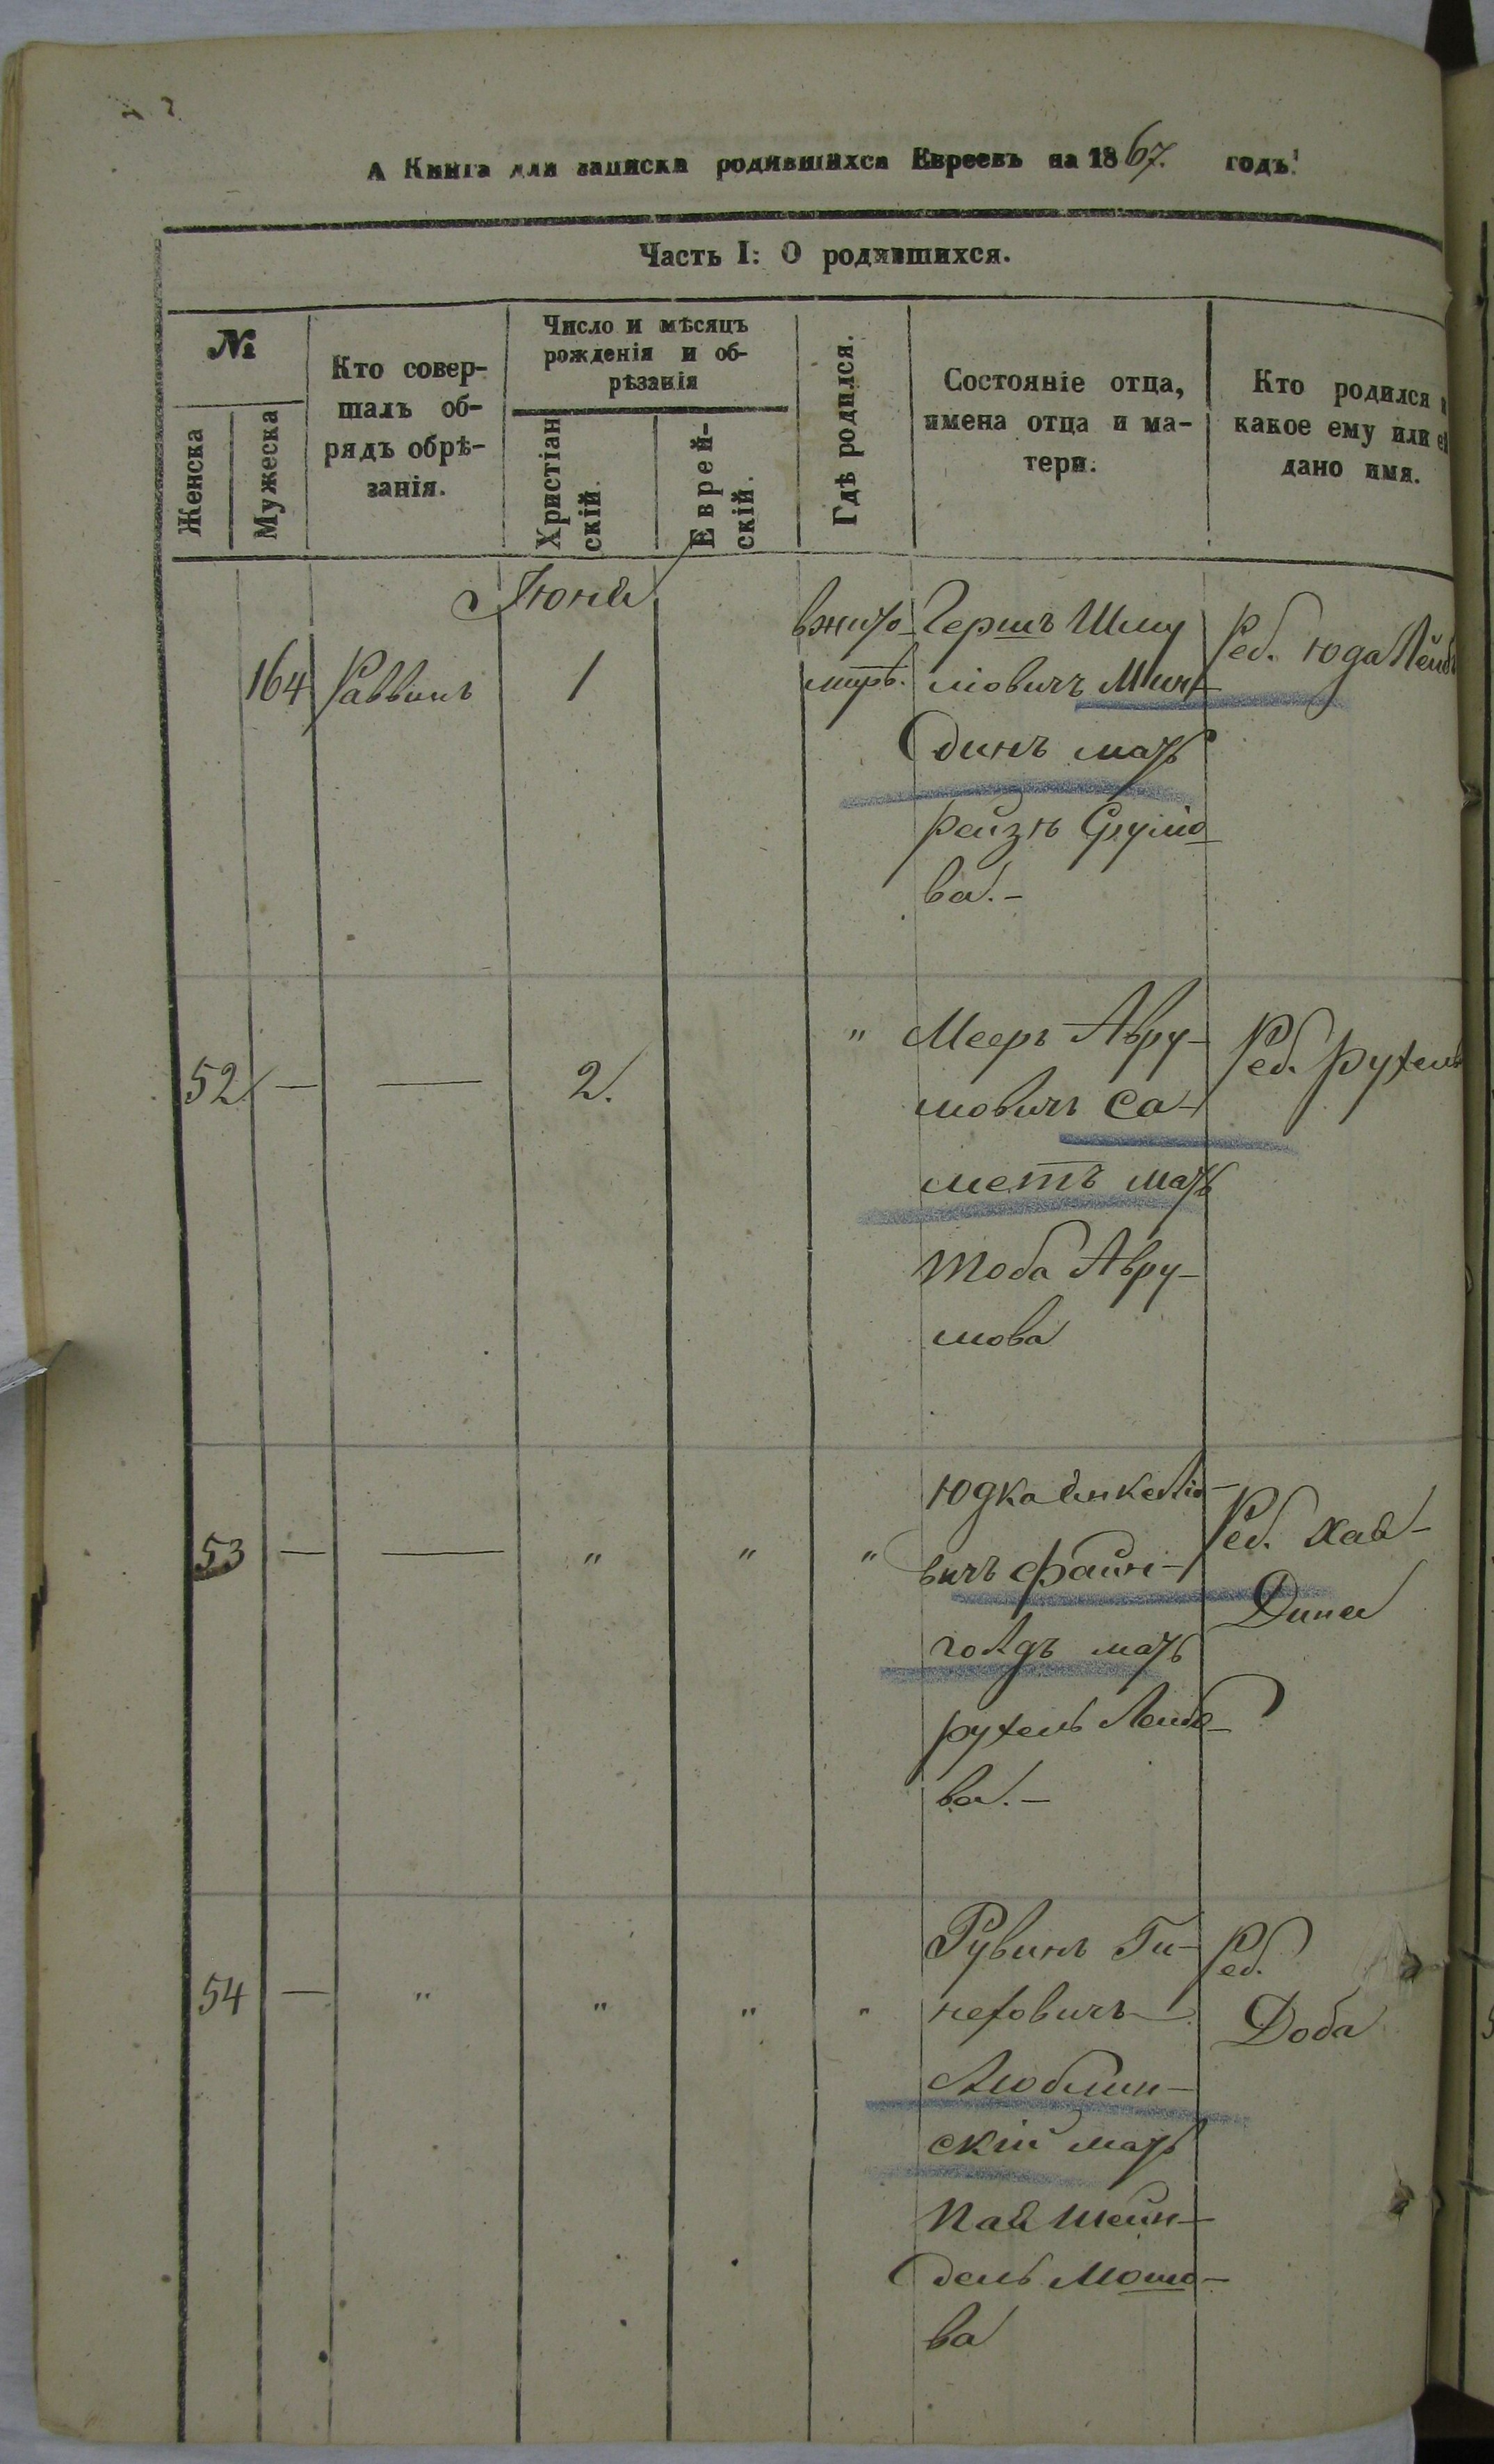 А Книга для записки родившихся Евреевъ на 1867. годъ.
Часть I: О родившихся.
№
Женска
Мужеска
Кто совер-
шалъ об-
рядъ обрѣ-
занія.
Число и мѣсяцъ
рожденія и об-
рѣзанія
Христіан
скій.
Еврей-
скій.
Гдѣ родился.
Состояніе отца,
имена отца и ма-
тери.
Кто родился и
какое ему или ей
дано имя.
Іюня
164 Раввинъ 1
вжито-
мирѣ.
Гершъ Шму
ліовичъ Мин-
динъ мать
рейзя Сруліо
ва.-
Реб. Юда Лейб
52 — — 2. "
Мееръ Авру-
мовичъ Са-
метъ мать
Тоба Авру-
мова
Реб. Рухель
53 — — " " "
Юдка Янкеліо-
вичъ Файн-
голдъ мать
рухель Лейбо-
ва.-
Реб. Хая-
Дина
54 — " " " "
Рувинъ Ги-
неховичъ
Люблин-
скій мать
Шейн-
дель Мошо-
ва
Реб.
Доба